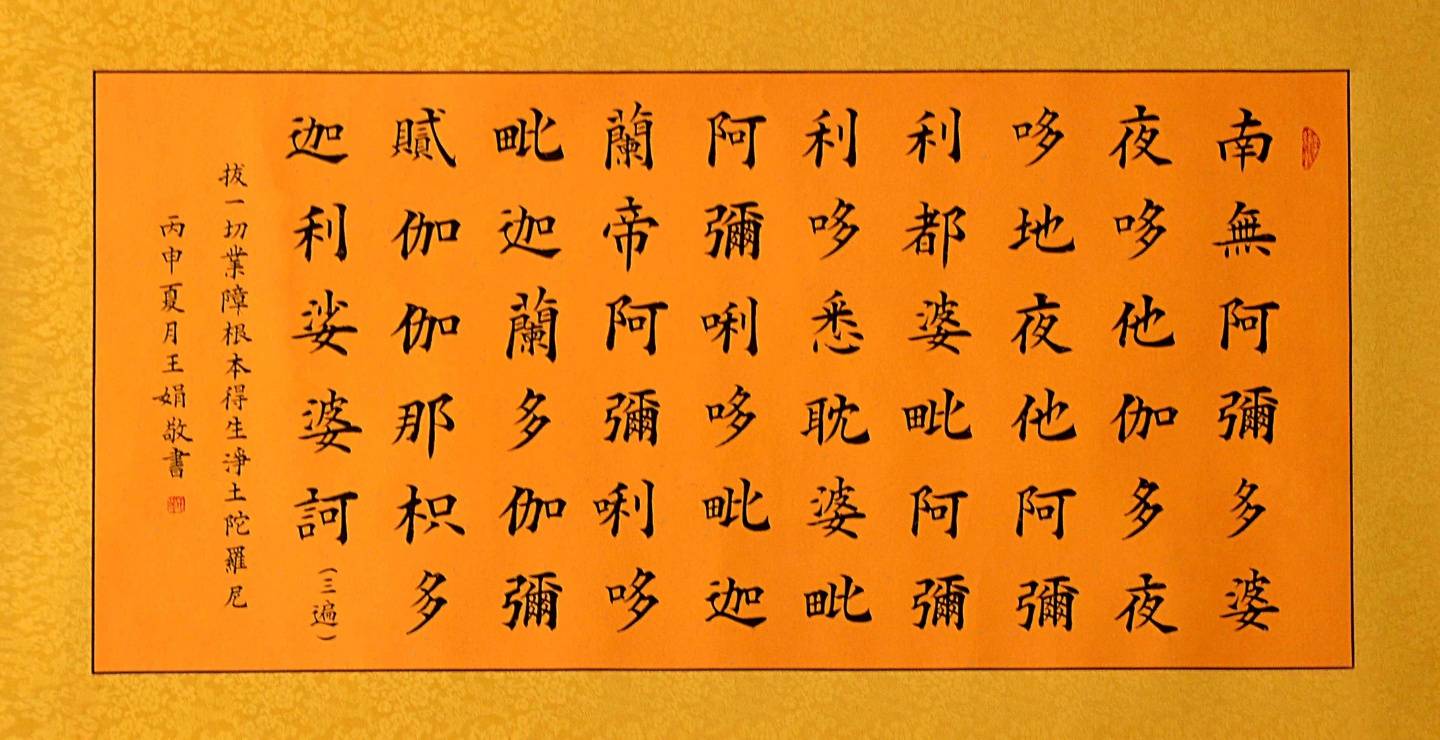 南無阿彌多婆
夜哆他伽多夜
哆地夜他阿彌
利都婆毗阿彌
利哆悉耽婆毗
阿彌唎哆毗迦
蘭帝阿彌唎哆
毗迦蘭多伽彌
膩伽伽那枳多
迦利娑婆訶（三遍）
拔一切業障根本得生淨土陀羅尼
丙申夏月王娟敬書